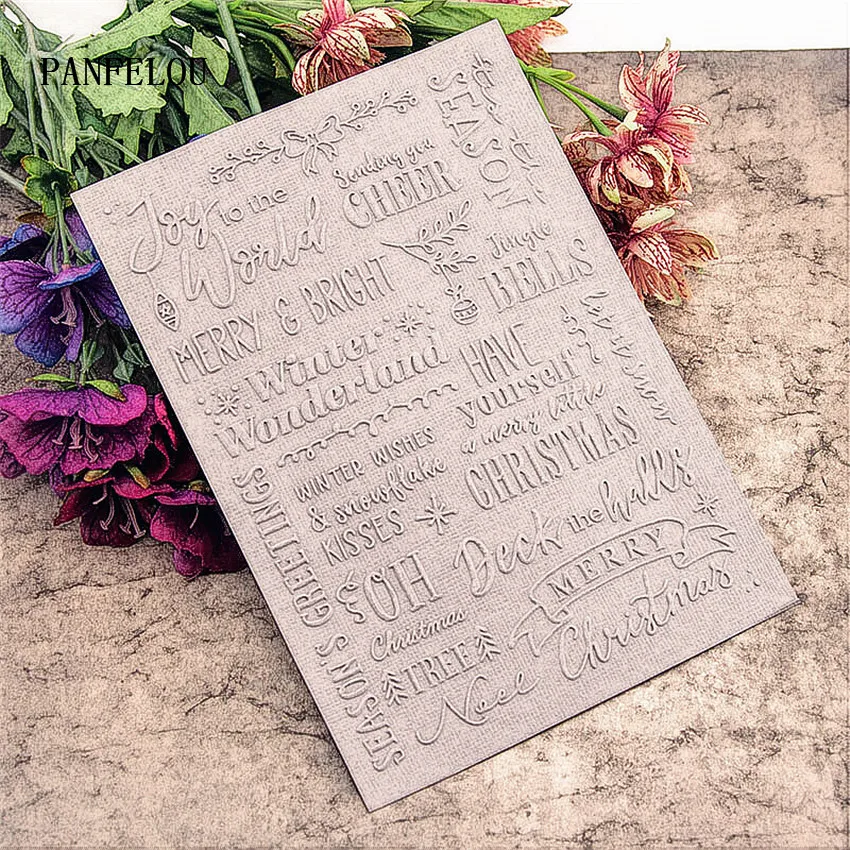 PANFELOU
Joy
to the
World
Sending you
CHEER
'tis the
SEASON
MERRY & BRIGHT
Jingle
BELLS
Winter
Wonderland
HAVE
yourself
a merry little
CHRISTMAS
let it snow
WINTER WISHES
& snowflake
KISSES
SEASON'S GREETINGS
Deck the halls
OH
Christmas
TREE
MERRY
Christmas
Noel